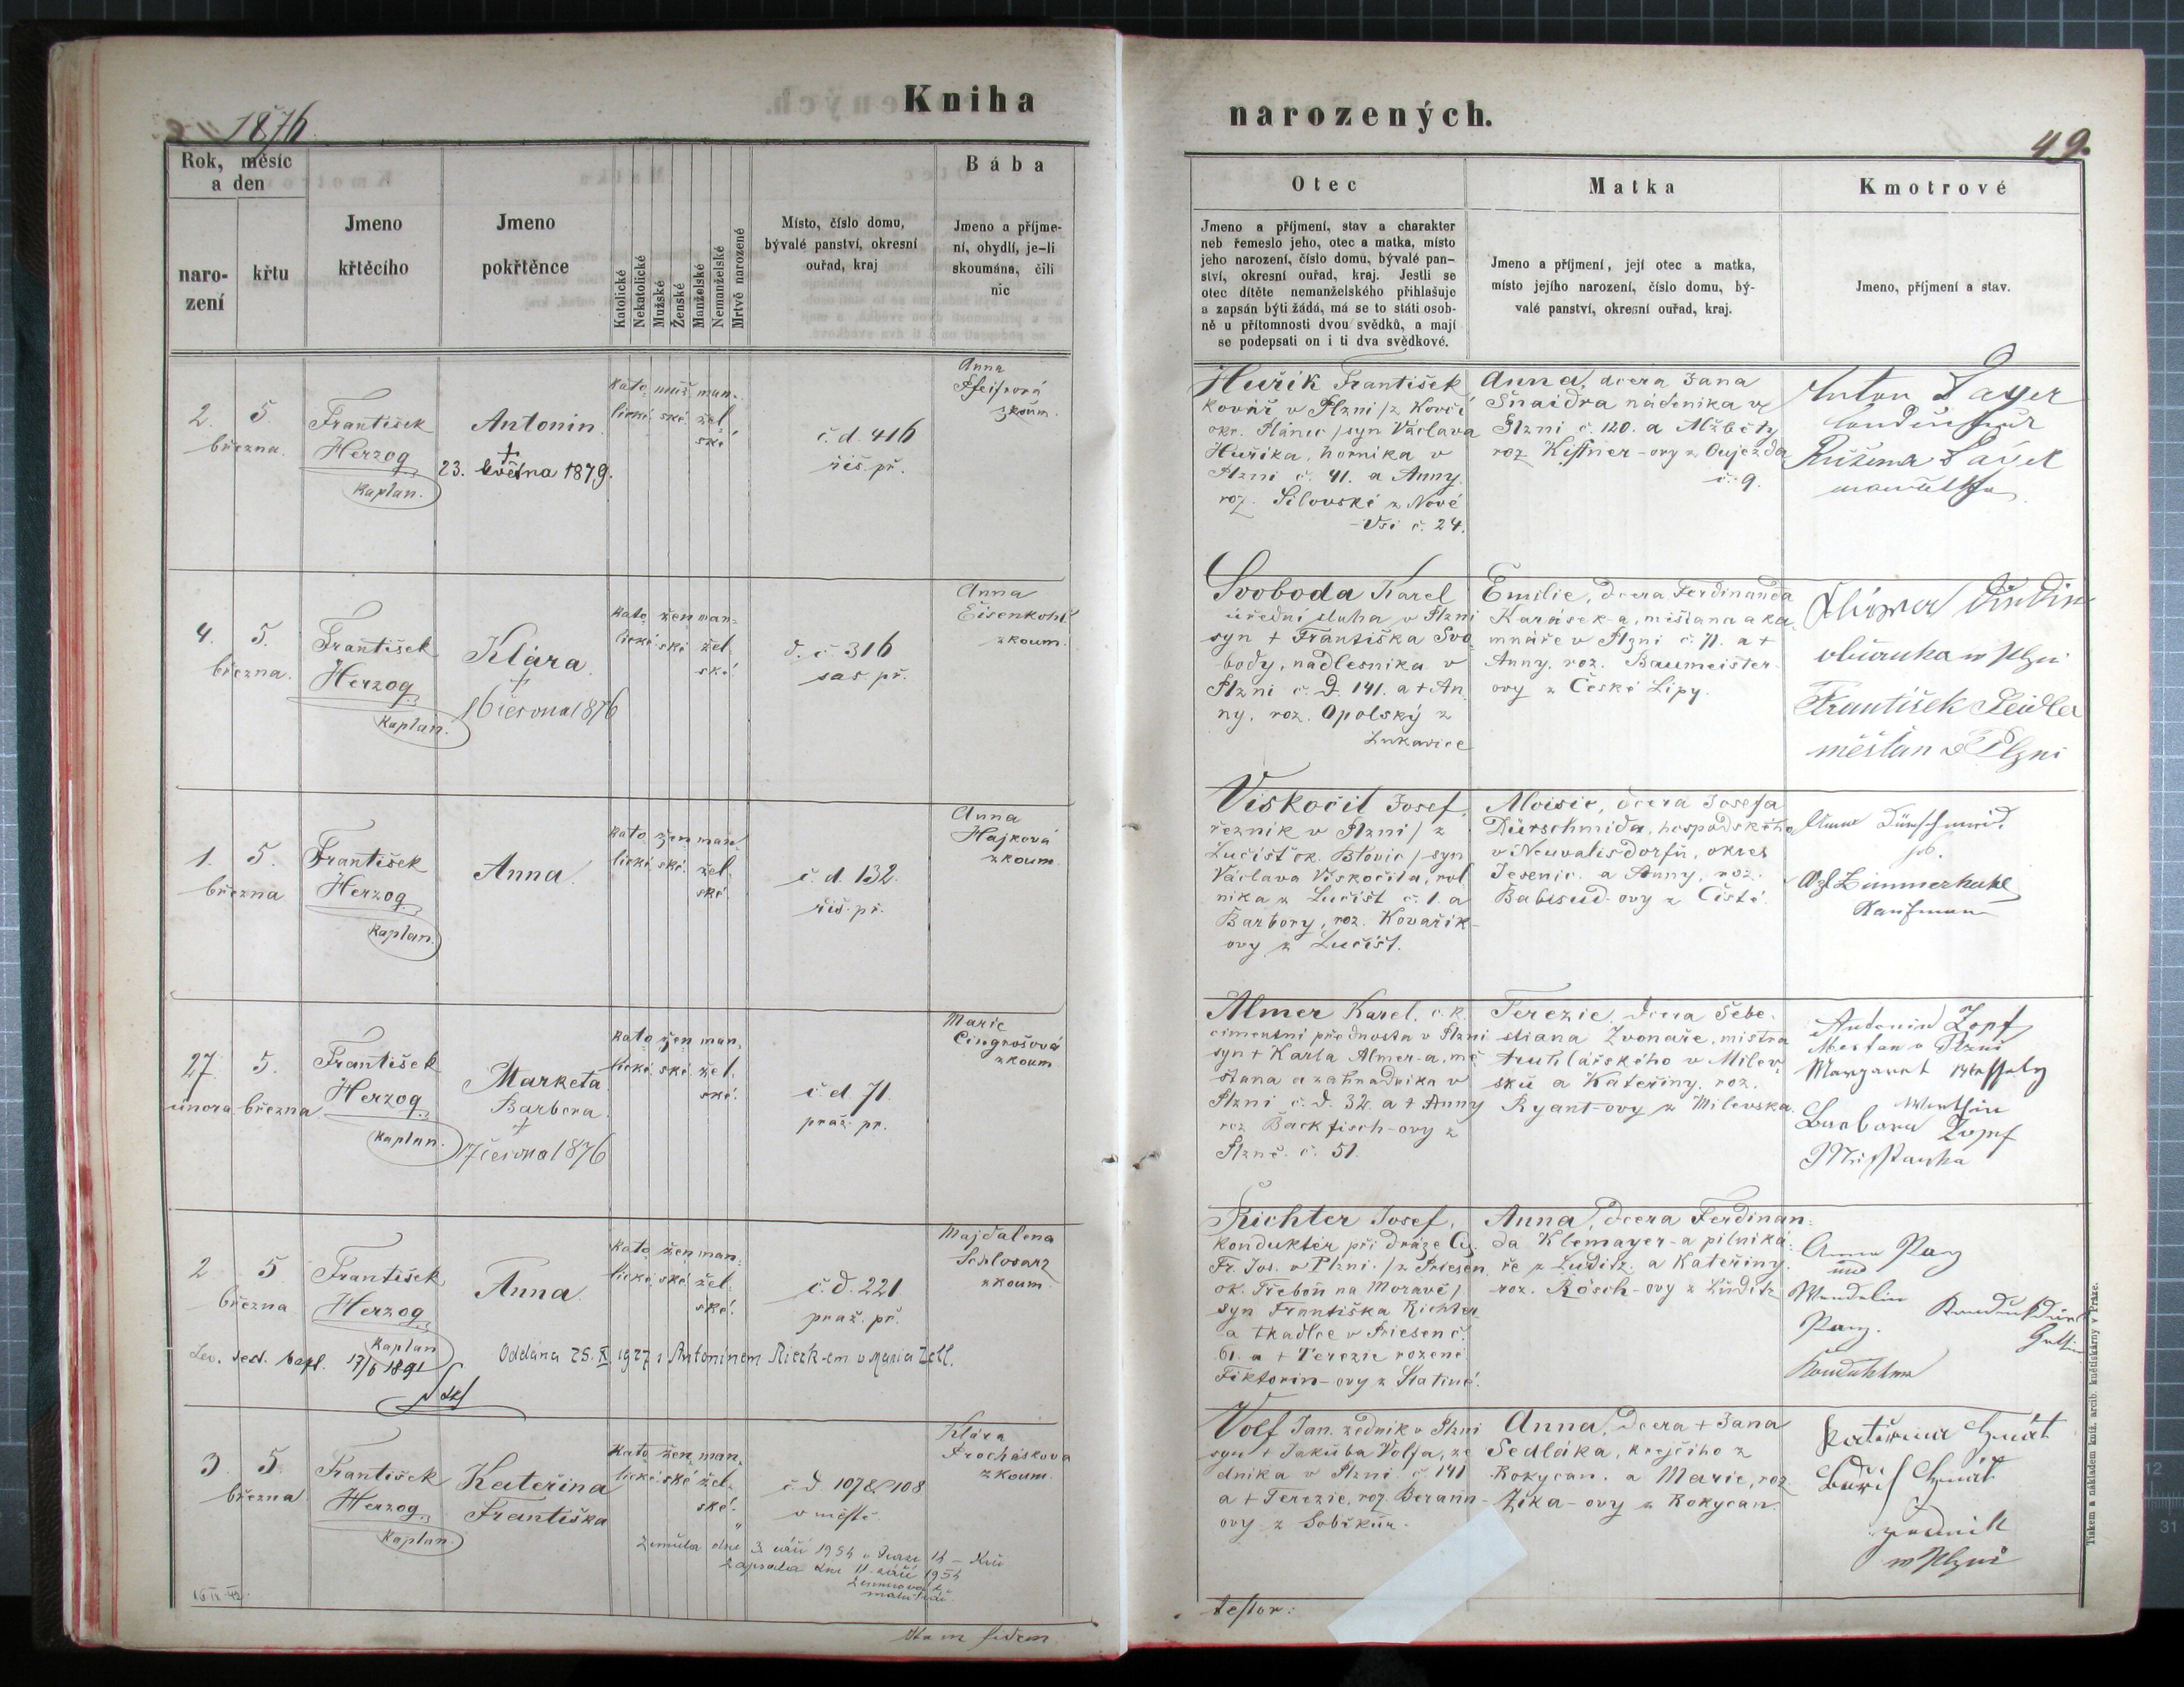 Kniha
1876
Rok, měsíc
a den
naro-
zení
křtu
Jmeno
křtěcího
Jmeno
pokřtěnce
Katolické
Nekatolické
Mužské
Ženské
Manželské
Nemanželské
Mrtvě narozené
Místo, číslo domu,
bývalé panství, okresní
ouřad, kraj
Bába
Jmeno a příjme-
ní, obydlí, je-li
skoumána, čili
nic
2. 5.
března.
František
Herzog
Kaplan.
Antonin
+
23. května 1879.
Kato muž man-
lické ské žel
ské
č. d. 416
řiš. př.
Anna
zkoum.
4. 5.
března.
František
Herzog
Kaplan.
Klára
+
16 června 1876
Kato žen man-
lické ské žel
ské.
d. č. 316
sas. př.
Anna
zkoum.
1. 5.
března
František
Herzog
Kaplan.
Anna.
Kato žen man
lické ské. žel
ské.
č. d. 132.
řiš. př.
Anna
Hajková
zkoum.
27. 5.
února března
František
Herzog
Kaplan.
Marketa
Barbora
+
17 června 1876
Kato žen man-
lické ské žel.
ské.
č. d. 71.
praž. př.
Marie
Cingrošová
zkoum
2 5
března
František
Herzog
Kaplan
Anna.
Kato žen man-
lické ské žel-
ské.
č. d. 221
praž. př.
Majdalena
Schlosarz
zkoum.
17/6 1891
Oddána 25. X. 1927 s Antonínem
3. 5.
března
František
Herzog
Kaplan.
Kateřina
Františka
Kato žen man-
lické ské žel-
ské.
č. d. 107 & 108
v městě.
Klára
Procháskova
zkoum.
Zemřela dne 3. září 1954
Zapsáno dne 11. září 1954
narozených.
49.
Otec
Jmeno a příjmení, stav a charakter
neb řemeslo jeho, otec a matka, místo
jeho narození, číslo domu, bývalé pan-
ství, okresní ouřad, kraj. Jestli se
otec dítěte nemanželského přihlašuje
a zapsán býti žádá, má se to státi osob-
ně u přítomnosti dvou svědků, a mají
se podepsati on i ti dva svědkové.
Matka
Jmeno a příjmení, její otec a matka,
místo jejího narození, číslo domu, bý-
valé panství, okresní ouřad, kraj.
Kmotrové
Jmeno, příjmení a stav.
Huřik František
kovář v Plzni /z Kovčí
okr. Plánic / syn Václava
Huřika, horníka v
Plzni č. 41. a Anny
roz. Silovské z Nové
-Vsi č. 24.
Anna, dcera Jana
Šnaidra nádeníka v
Plzni č. 120. a Alžběty
roz. Kistner-ovy z Oujezda
č. 9.
Anton Payer
Svoboda Karel
úřední sluha v Plzni
syn + Františka Svo
body, nadlesníka v
Plzni č. d. 141. a + An
ny, roz. Opolský z
Lukavice
Emilie, dcera Ferdinanda
Karásek-a, měšťana a ka
mnáře v Plzni č. 71. a +
Anny, roz. Baumeister-
ovy z České Lípy.
František Seidler
měšťan v Plzni
Viskočil Josef,
řezník v Plzni / z
Lučišť ok. Blovic / syn
Václava Viskočila, rol
níka z Lučišt č. 1. a
Barbory, roz. Kovařík-
ovy z Lučišt.
Aloisie, dcera Josefa
Dürschmida, hospodského
v Neuvalisdorfu, okres
Jesenic. a Anny, roz.
Zimmerhakl
Kaufmann
Almer Karel, c. k.
cimentní přednosta v Plzni
syn + Karla Almer-a, mě
šťana a zahradníka v
Plzni č. d. 32. a + Anny
roz Backfisch-ovy z
Plzně. č. 51.
Terezie, dcera Šebe-
stiana Zvonaře, mistra
truhlářského v Milev
sku a Kateřiny, roz.
Ryant-ovy z Milevska.
Antonin Zopf
Mestan v Plzni
Barbora Zopf
Richter Josef,
kondukter při dráze Cy.
Fr. Jos. v Plzni. /z Priesen
ok. Třeboň na Moravě/
syn Františka Richter
a tkadlce v Priesen č.
61. a + Terezie rozené
Fiktorin-ovy z Slatiné.
Anna, dcera Ferdinan-
da Klemayer-a pilníká-
ře z Luditz. a Kateřiny
roz. Rösch-ovy z Luditz
und
Wendelin
Volf Jan. zedník v Plzni
syn + Jakuba Volfa, ze
dníka v Plzni. č. 141
a + Terezie, roz. Beran-
ovy z Soběkur.
Anna, dcera + Jana
Sedláka, krejčího z
Rokycan. a Marie, roz
Žika-ovy z Rokycan.
Kateřina
v Plzni
Tiskem a nákladem kníž. arcib. knětiskárny v Praze.